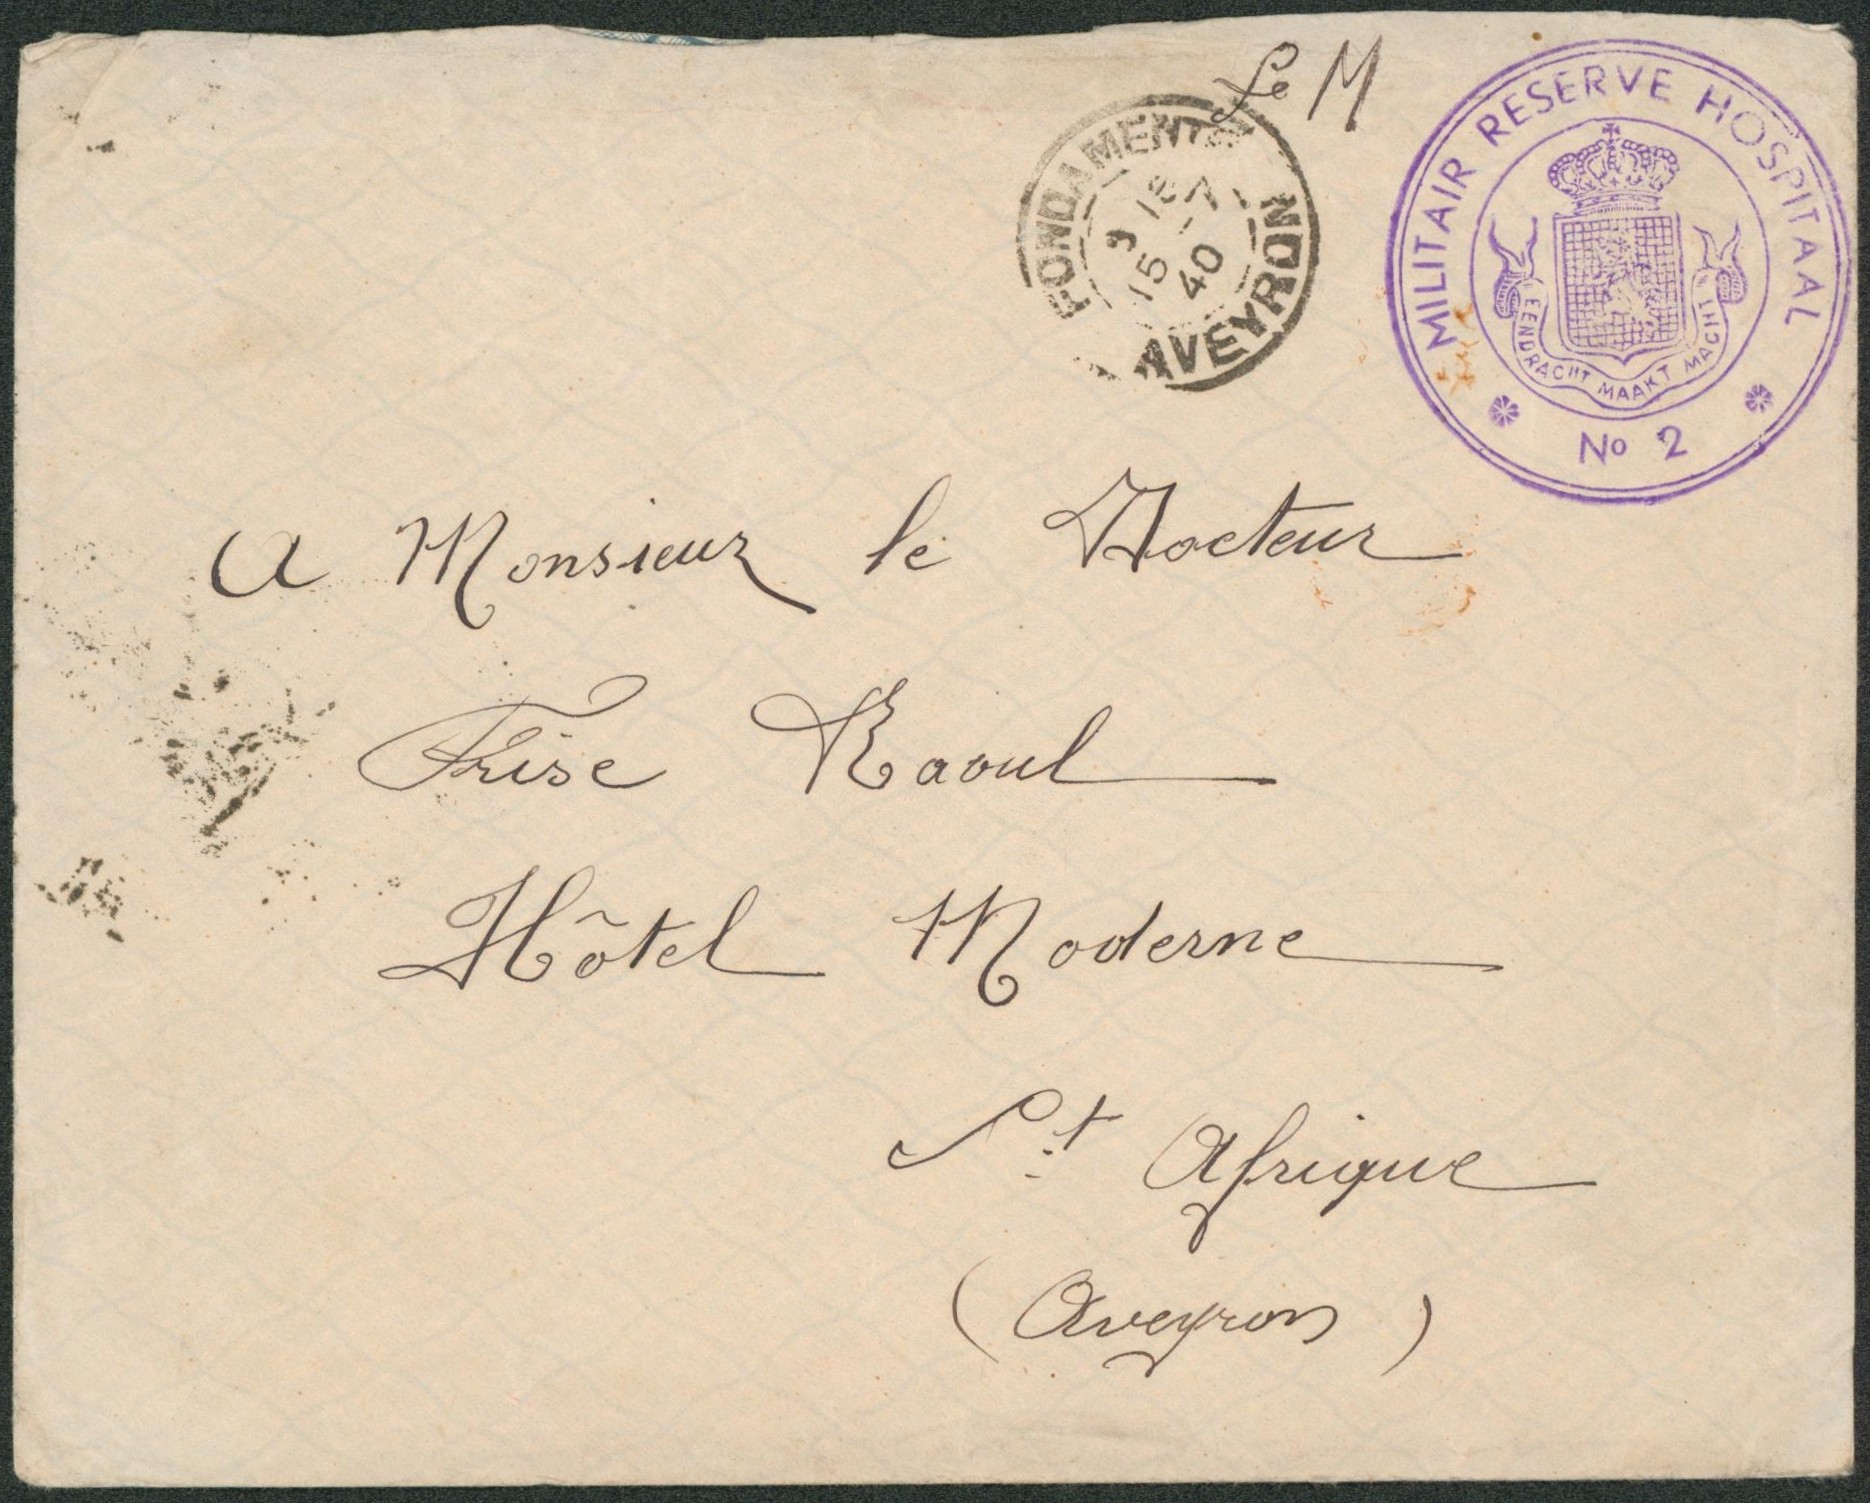 Le M
FONDAMENTE
9 15
15 -7
40
AVEYRON
MILITAIR RESERVE HOSPITAAL
EENDRACHT MAAKT MACHT
No 2
A Monsieur le Docteur
Frise Raoul
Hôtel Moderne
St Afrique
(Aveyron)